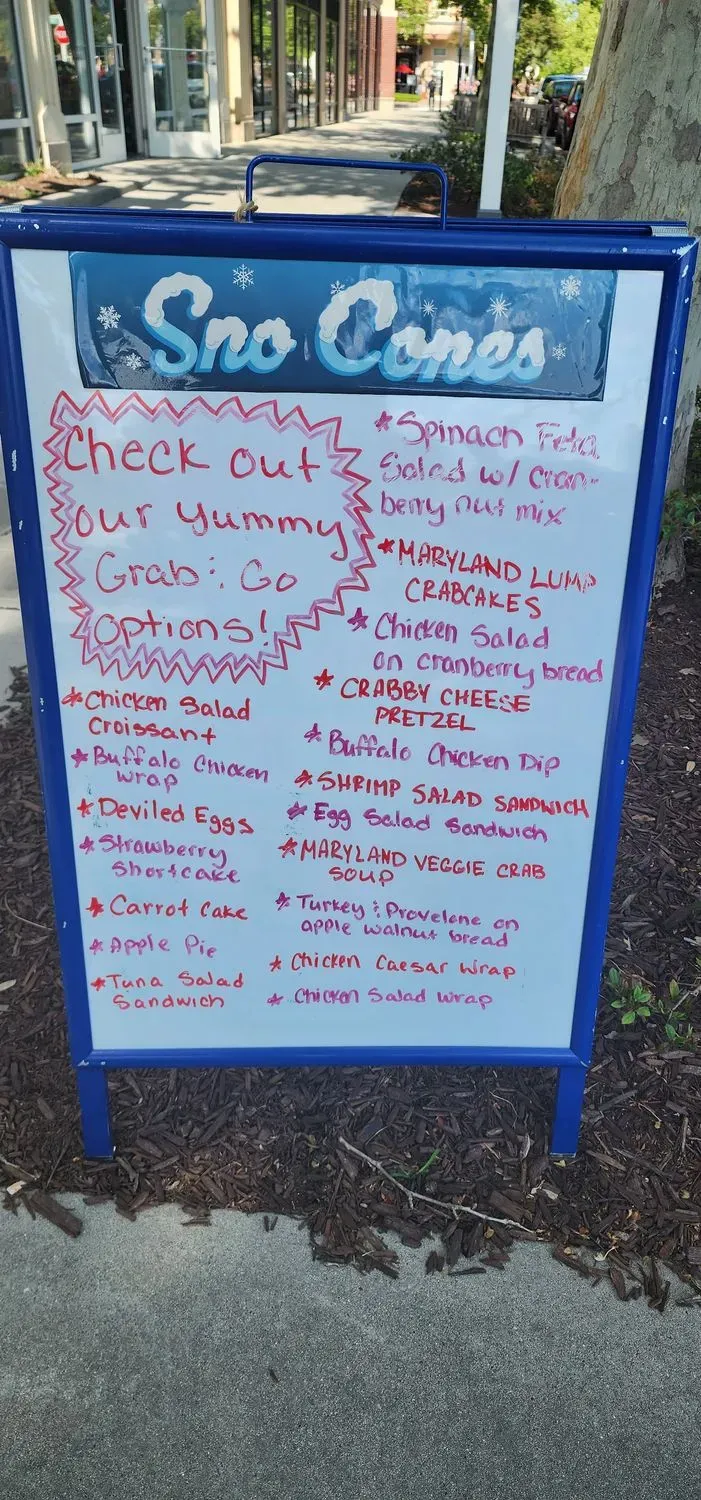 Sno Cones
Check out
our yummy
Grab & Go
options!
* Chicken Salad
Croissant
* Buffalo Chicken
wrap
* Deviled Eggs
* Strawberry
Shortcake
* Carrot Cake
* Apple Pie
* Tuna Salad
Sandwich
* Spinach Feta
Salad w/ cran-
berry nut mix
* MARYLAND LUMP
CRABCAKES
* Chicken Salad
on cranberry bread
* CRABBY CHEESE
PRETZEL
* Buffalo Chicken Dip
* SHRIMP SALAD SANDWICH
* Egg Salad Sandwich
* MARYLAND VEGGIE CRAB
SOUP
* Turkey & Provelone on
apple walnut bread
* Chicken Caesar wrap
* Chicken Salad wrap